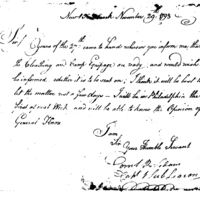 November 29. 1793
Sir,
Yours of the 27th came to hand wherein you inform me that
the Cloathing and Camp Equipage are ready, and would wish to
be informed whether it is to be sent on; I think it will be best to
let the matter rest a few days - I will be in Philadelphia the
first of next Week and will be able to know the Opinion of
General Knox
I am,
Sir
Your Humble Servant